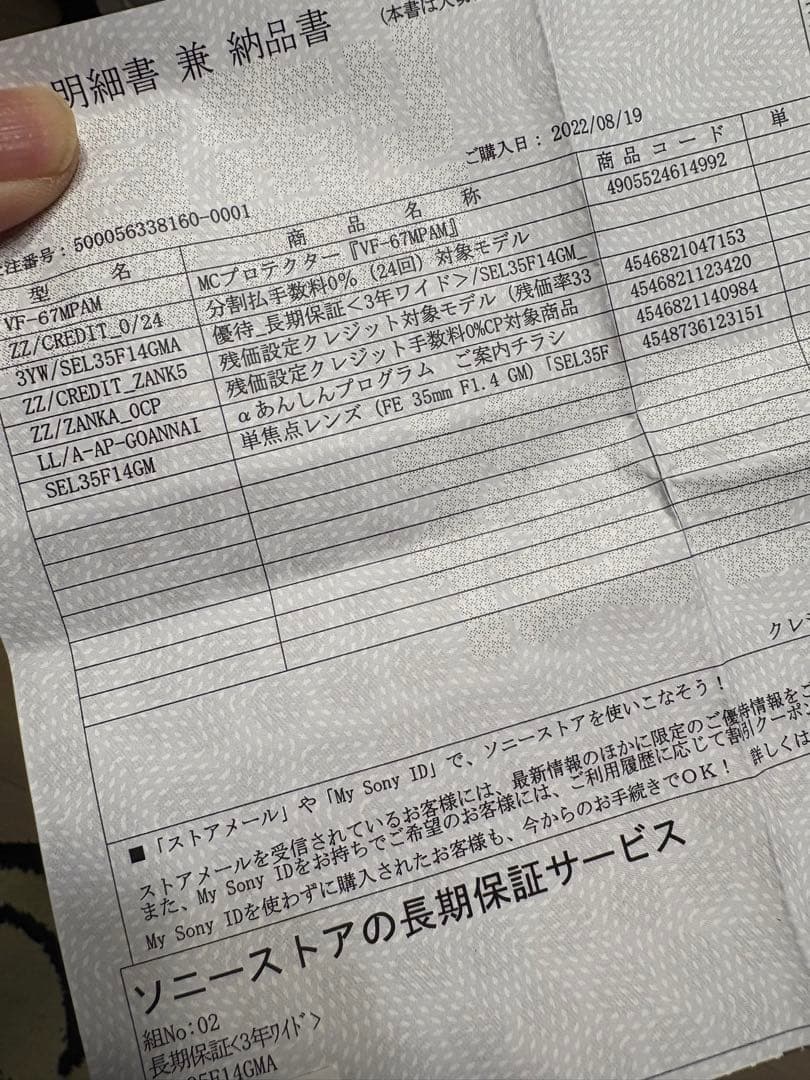 明細書 兼 納品書
(本書は大切
ご購入日： 2022/08/19
注番号：500056338160-0001
型 名 商 品 名 称 商 品 コ ー ド 単
VF-67MPAM MCプロテクター『VF-67MPAM』 4905524614992
ZZ/CREDIT_0/24 分割払手数料0％（24回）対象モデル
3YW/SEL35F14GMA 優待_長期保証<3年ワイド>/SEL35F14GM_
ZZ/CREDIT_ZANK5 残価設定クレジット対象モデル（残価率33 4546821047153
ZZ/ZANKA_0CP 残価設定クレジット手数料0%CP対象商品 4546821123420
LL/A-AP-GOANNAI αあんしんプログラム ご案内チラシ 4546821140984
SEL35F14GM 単焦点レンズ（FE 35mm F1.4 GM）「SEL35F 4548736123151
クレジ
■「ストアメール」や「My Sony ID」で、ソニーストアを使いこなそう！
ストアメールを受信されているお客様には、最新情報のほかに限定のご優待情報をご
また、My Sony IDをお持ちでご希望のお客様には、ご利用履歴に応じて割引クーポン
My Sony IDを使わずに購入されたお客様も、今からのお手続きでOK！ 詳しくは
ソニーストアの長期保証サービス
組No:02
長期保証<3年ﾜｲﾄﾞ>
35F14GMA